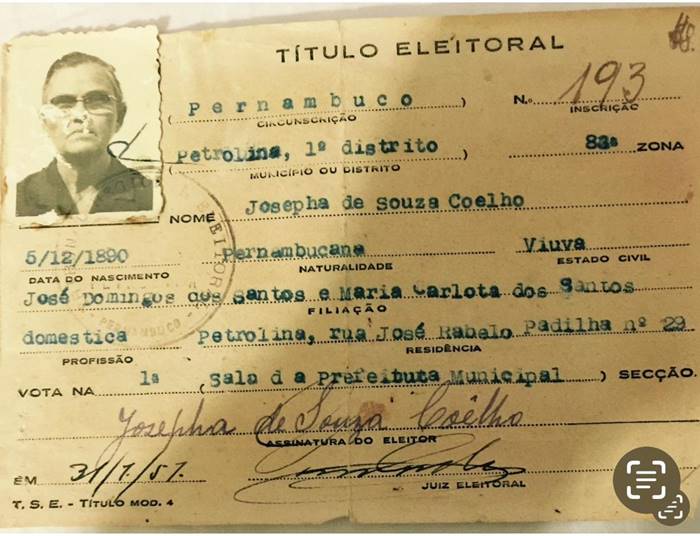 TÍTULO ELEITORAL
Pernambuco
N.o 193
CIRCUNSCRIÇÃO
INSCRIÇÃO
Petrolina, 1º distrito
83ª ZONA
MUNICÍPIO OU DISTRITO
NOME Josepha de Souza Coelho
5/12/1890 Pernambucana Viuva
DATA DO NASCIMENTO NATURALIDADE ESTADO CIVIL
José Domingos dos Santos e Maria Carlota dos Santos
FILIAÇÃO
domestica Petrolina, rua José Rabelo Padilha nº 29
PROFISSÃO RESIDÊNCIA
VOTA NA 1a ( Sala d a Prefeitura Municipal ) SECÇÃO.
Josepha de Souza Coêlho
ASSINATURA DO ELEITOR
EM 31/7/57.
JUIZ ELEITORAL
T. S. E. - TÍTULO MOD. 4